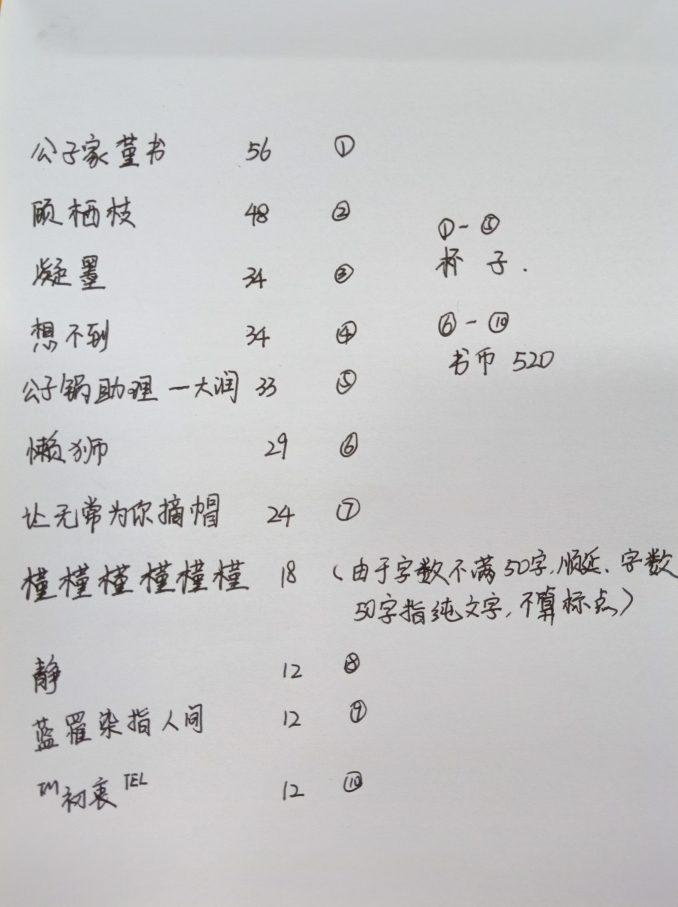 公子家堇书 56 ①
顾栖枝 48 ②
凝墨 34 ③
想不到 34 ④
公子锅助理一大润 33 ⑤
懒狮 29 ⑥
让无常为你摘帽 24 ⑦
槿槿槿槿槿槿 18 (由于字数不满50字,顺延.字数
50字指纯文字,不算标点)
静 12 ⑧
蓝罹染指人间 12 ⑨
TM初衷TEL 12 ⑩
①-⑤
杯子.
⑥-⑩
书币 520